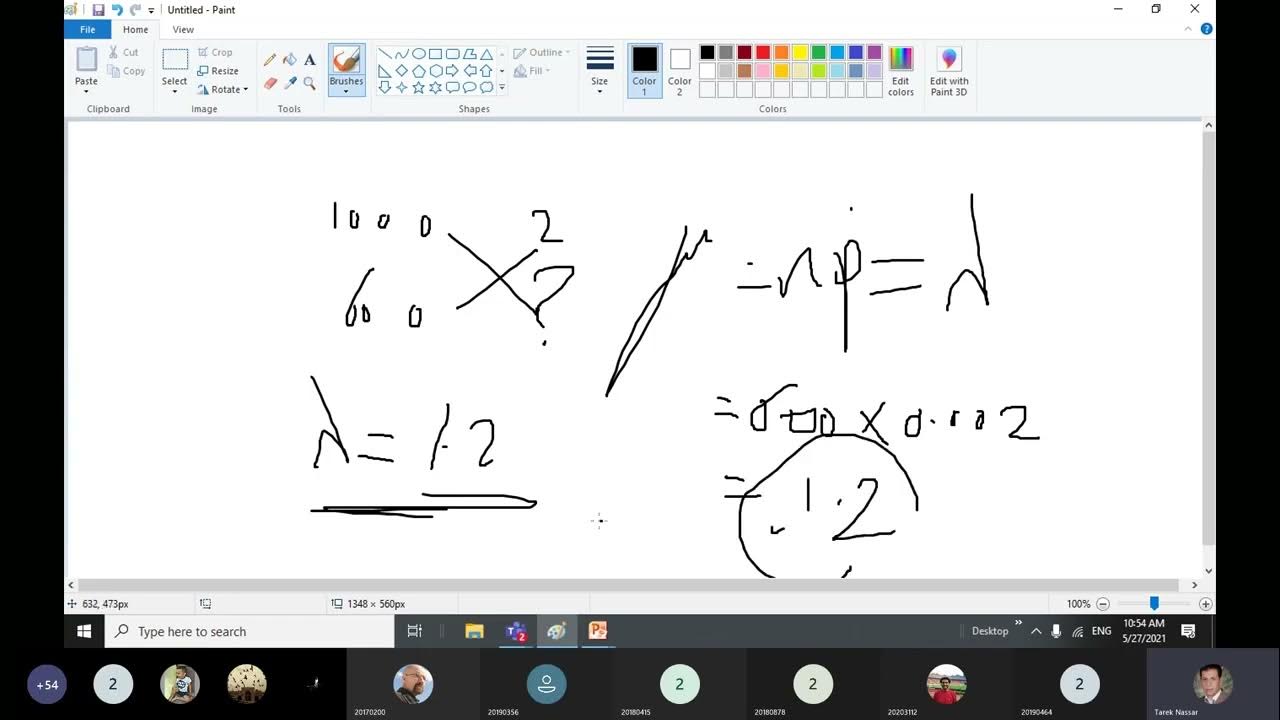 Untitled - Paint
File Home View
Paste
Cut
Copy
Clipboard
Select
Crop
Resize
Rotate
Image
Tools
Brushes
Shapes
Outline
Fill
Size
Color 1
Color 2
Colors
Edit colors
Edit with Paint 3D
1000 2
600 ?
μ = np = λ
= 600 × 0.002
= 1.2
λ = 1.2
632, 473px
1348 × 560px
100%
Type here to search
Desktop
ENG
10:54 AM
5/27/2021
+54
2
2
2
2
20170200
20190356
20180415
20180878
20203112
20190464
Tarek Nassar